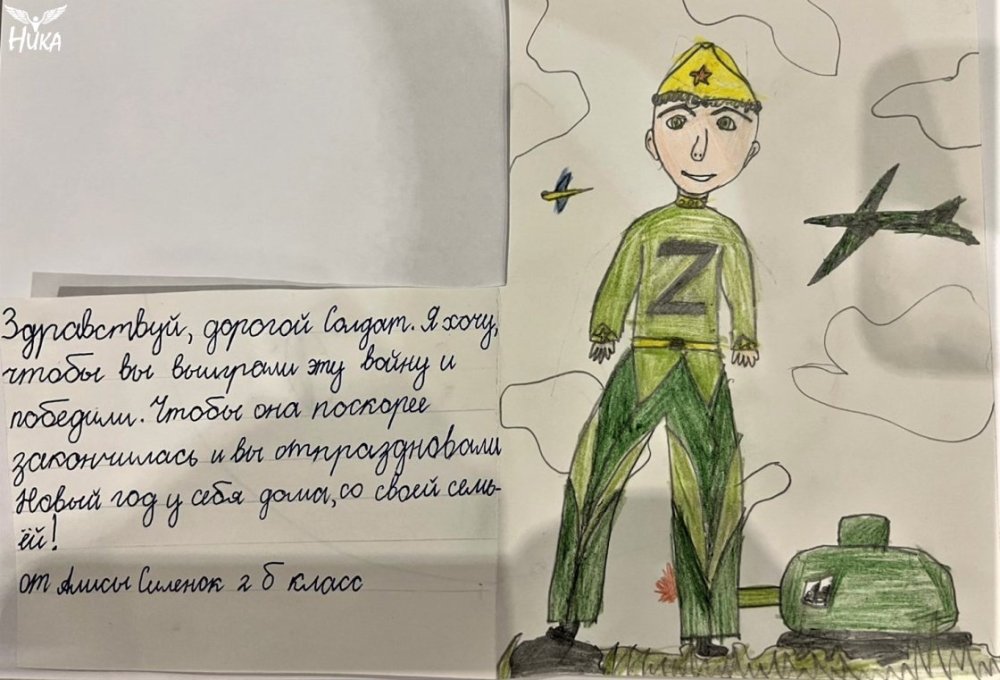 НИКА
Здравствуй, дорогой Солдат. Я хочу,
чтобы вы выиграли эту войну и
победили. Чтобы она поскорее
закончилась и вы отпраздновали
Новый год у себя дома, со своей семь-
ёй!
от Алисы Силенок 2 б класс
Z